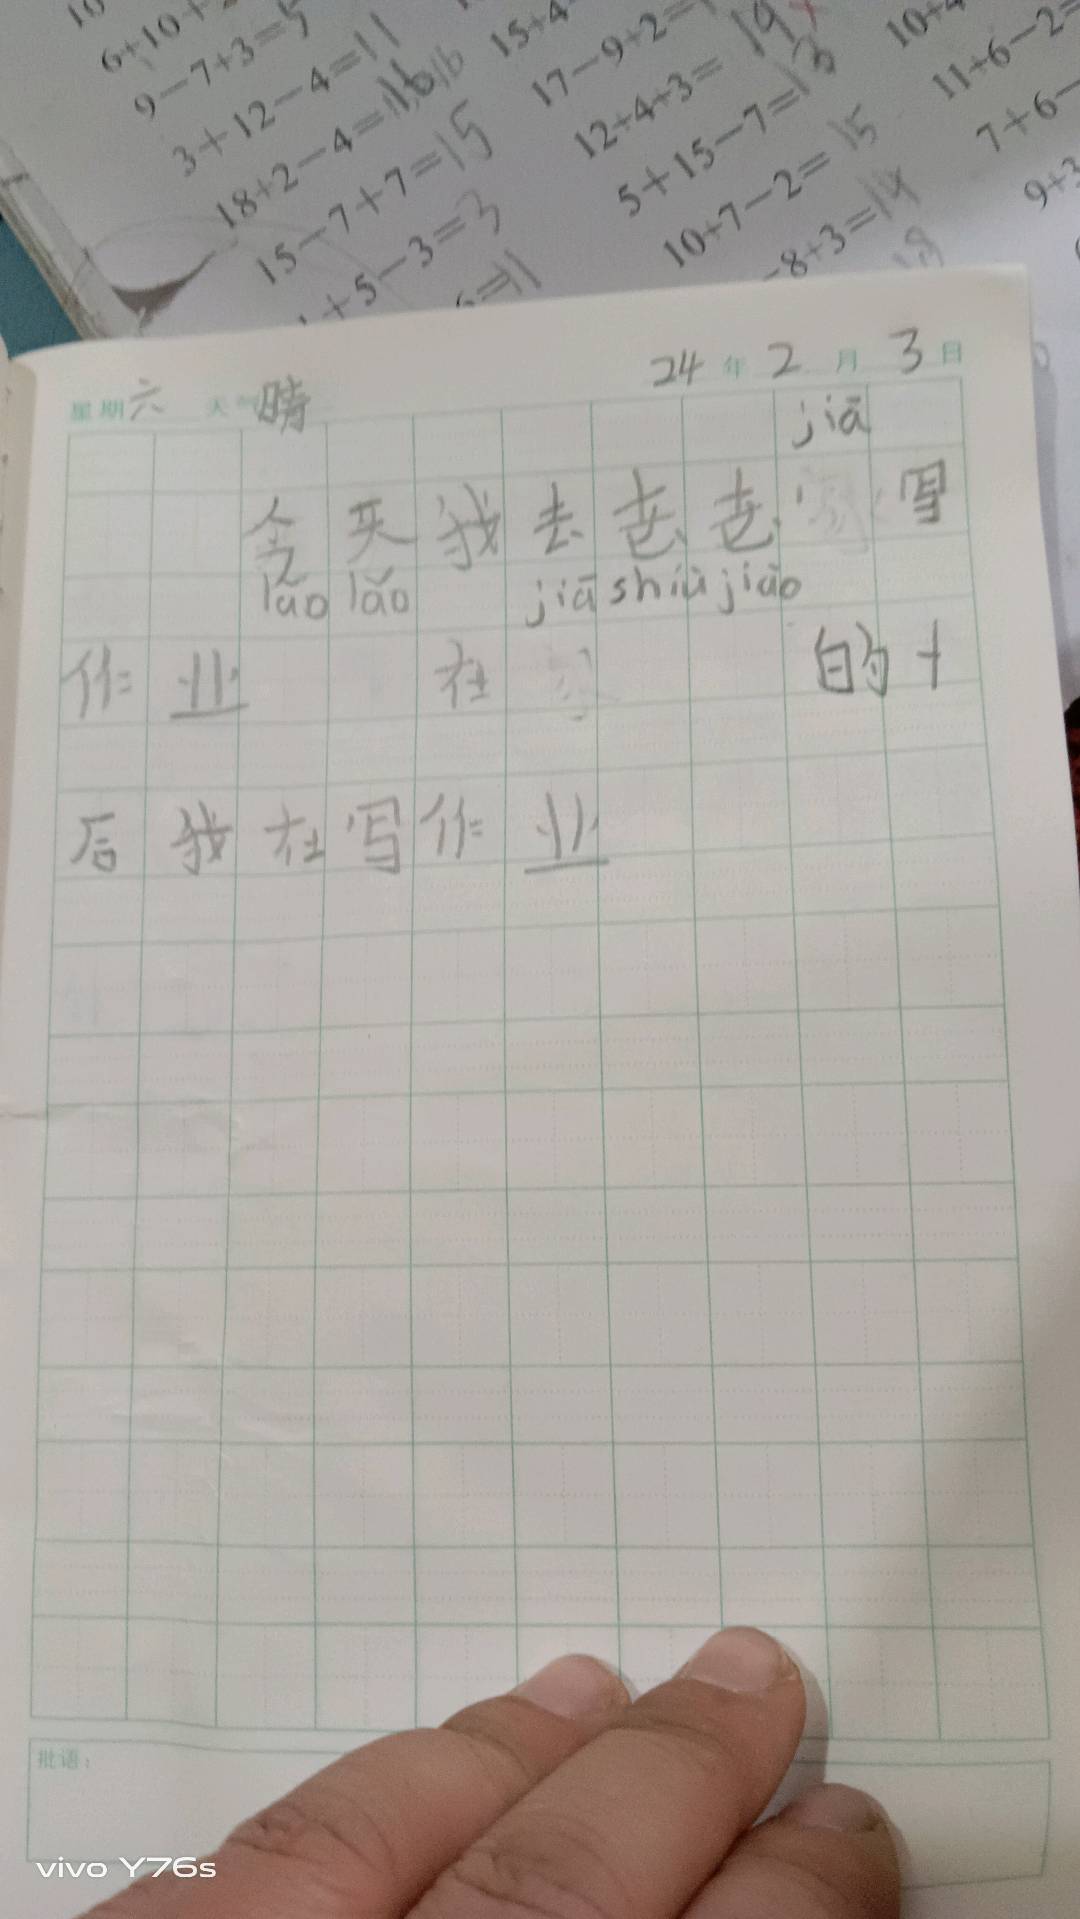 6+10+
9-7+3=5
3+12-4=11
18+2-4=16 16
15-7+7=15
+5-3=3
=11
15+4
17-9+2=
12+4+3=19
5+15-7=13
10+7-2=15
-8+3=14
18
10+4
11+6-2=
7+6-
9+3
星期六 天气晴 24年2月3日
jiā
今天我去老老 写
lǎo lǎo jiā shiù jiào
作业 在 的十
后我在写作业
批语：
vivo Y76s